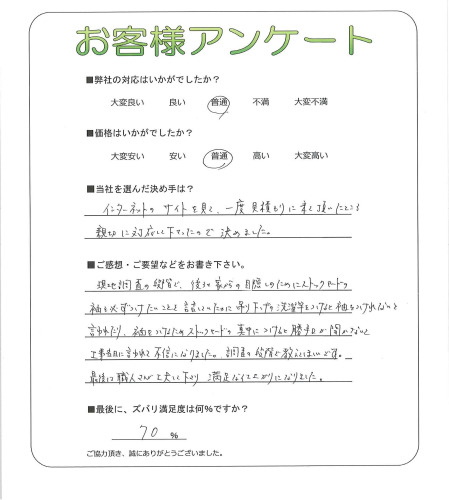 お客様アンケート
■弊社の対応はいかがでしたか?
大変良い 良い 普通 不満 大変不満
■価格はいかがでしたか?
大変安い 安い 普通 高い 大変高い
■当社を選んだ決め手は?
インターネットのサイトを見て、一度見積もりに来て頂いたところ
親切に対応して下さったので決めました。
■ご感想・ご要望などをお書き下さい。
現地調査の段階で、後ろの家からの目隠しのためにストックヤードの
袖を必ずつけたいことを話していたのに吊り下げの洗濯竿をつけると袖をつけれないと
言われたり、袖をつけるためストックヤードの真中につけると勝手口が開かないと
工事当日に言われて不信になりました。調査の段階で教えてほしいです。
最後は職人さんが工夫して下さり満足な仕上がりになりました。
■最後に、ズバリ満足度は何%ですか?
70 %
ご協力頂き、誠にありがとうございました。